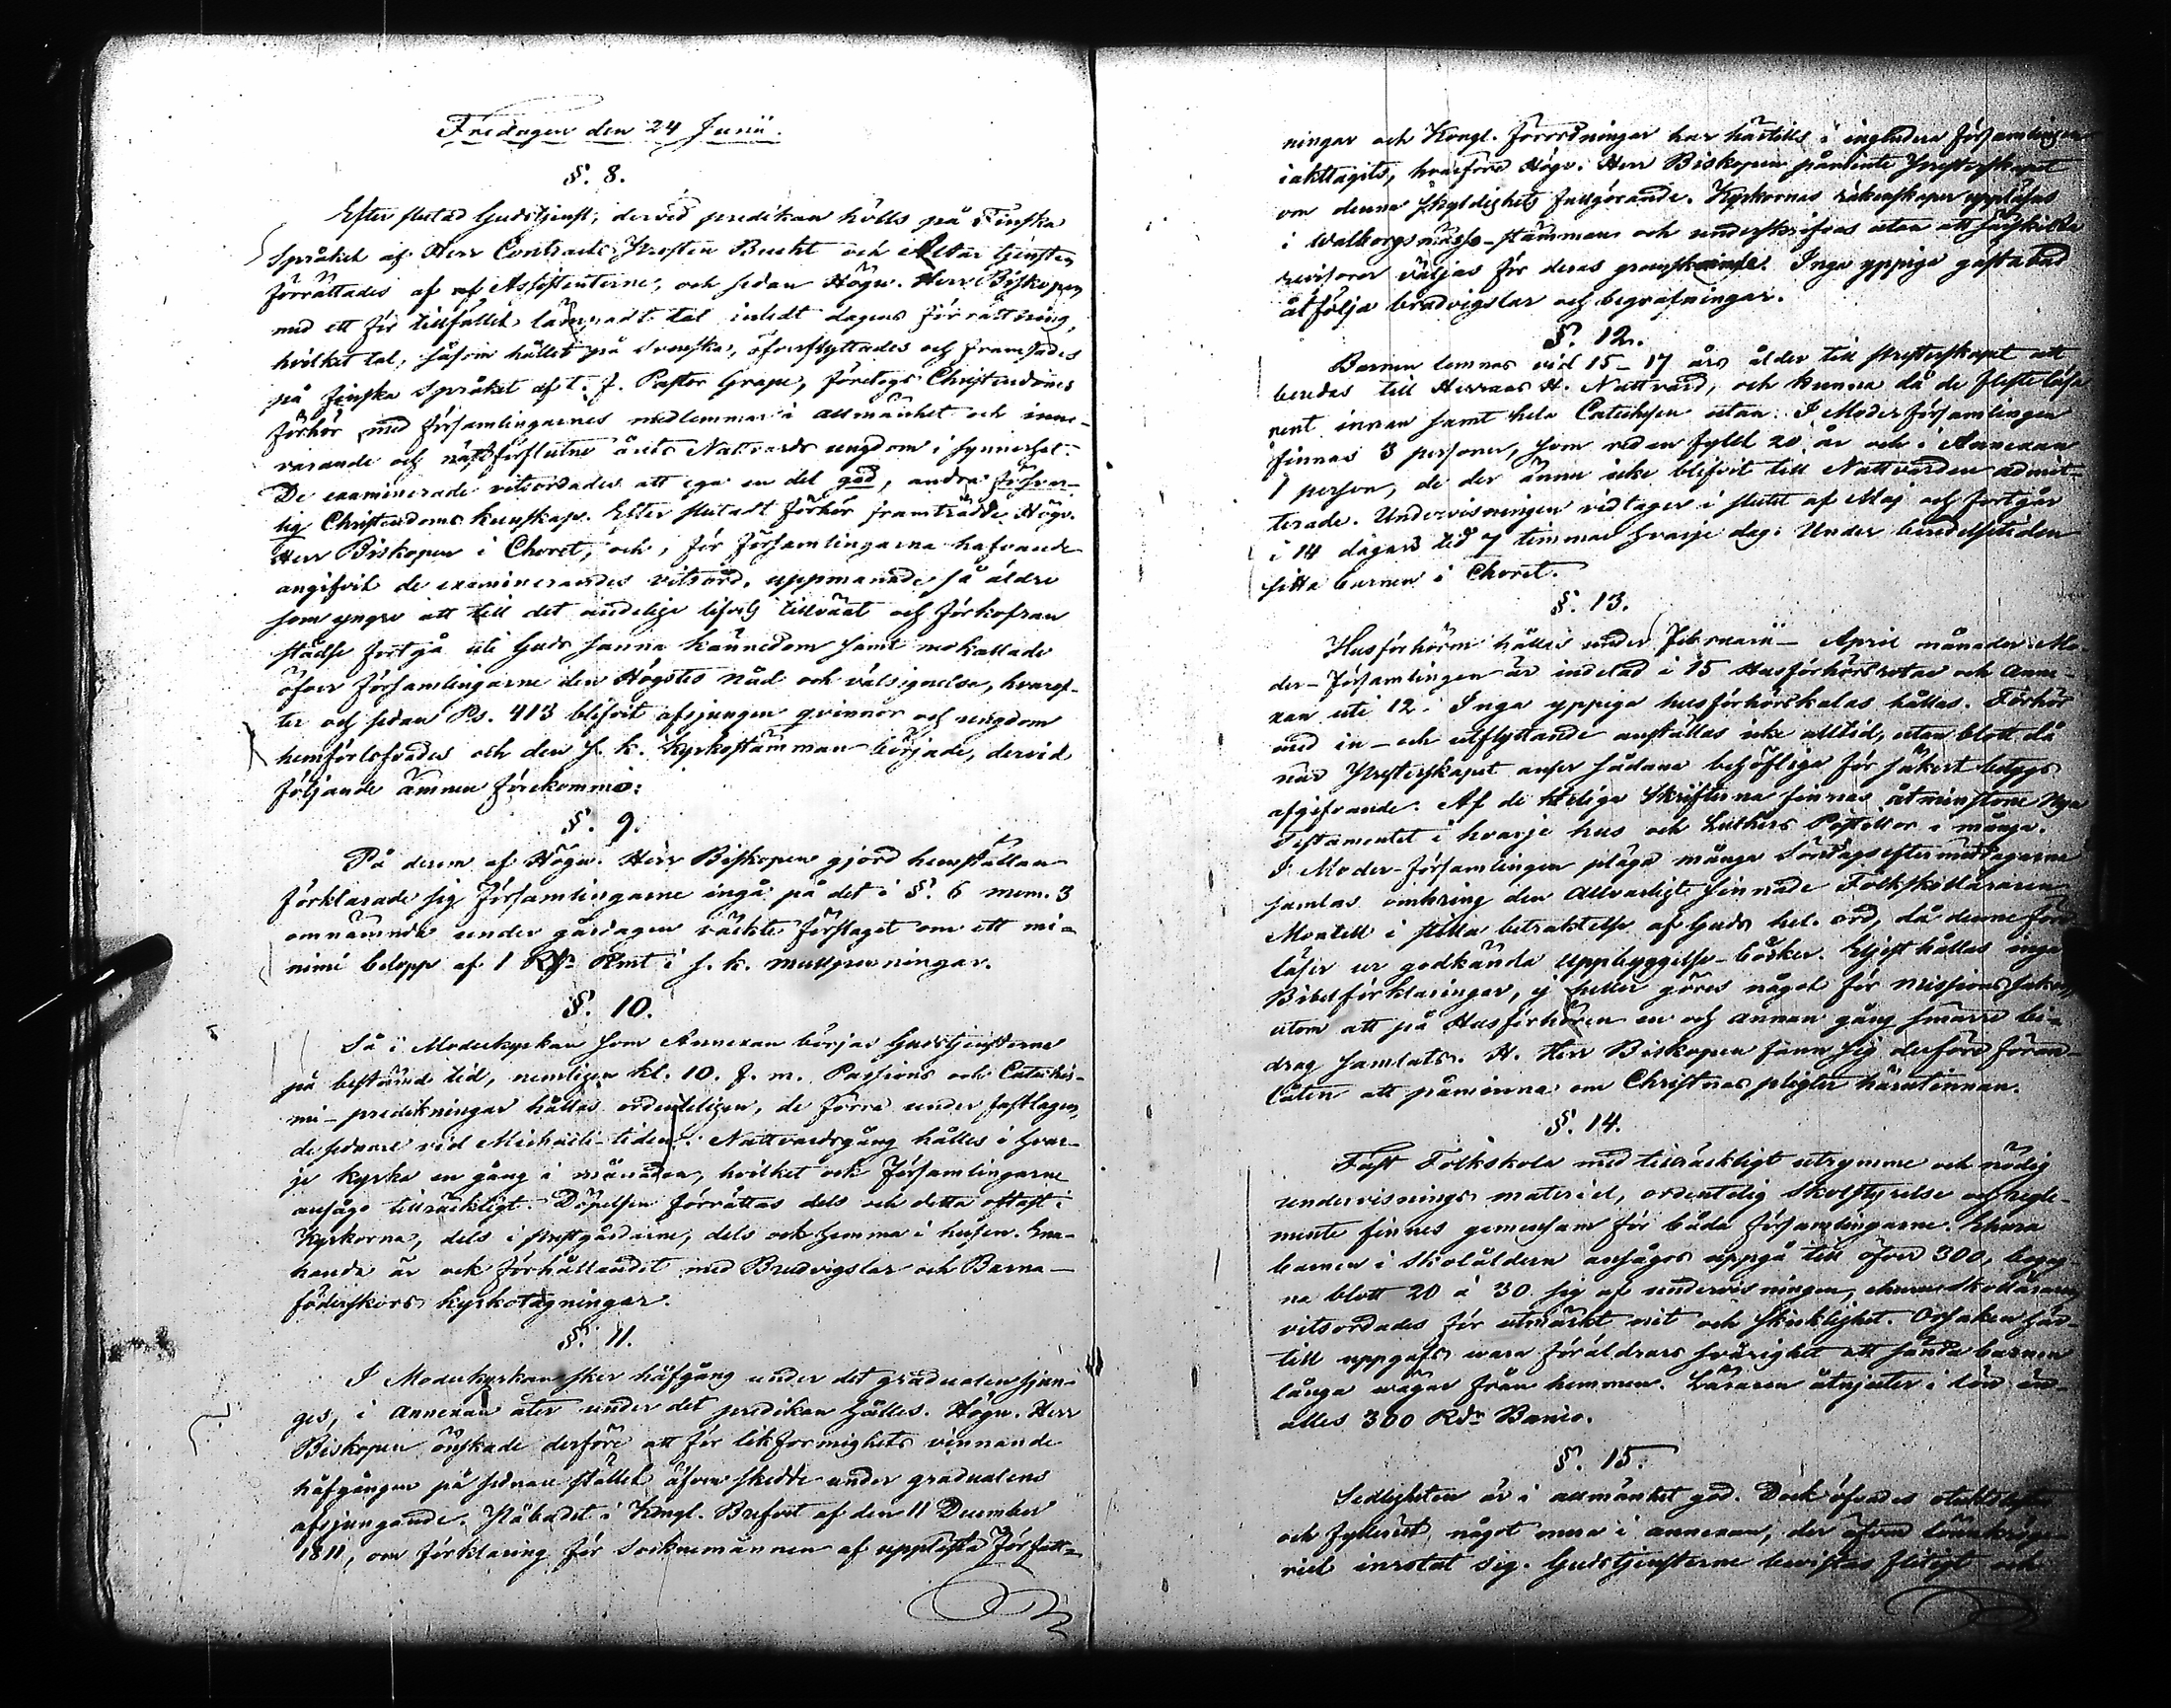 Fredagen den 24 Junii.
§. 8.
Efter slutad Gudstjenst, dervid predikan hölls på Finska
Språket af Herr Contracts Prosten Bucht och Altar tjensten
förrättades af af Assistenterne, och sedan Högw. Herr Biskopen
med ett för tillfället lämpadt tal inledt dagens förrättning,
hvilket tal, såsom hållet på Svenska, öfverflyttades och framsades
på finska Språket af t. f. Pastor Grape, företogs Christendoms
förhör med församlingarnes medlemmar i allmänhet och inne-
varande och nästförflutne årets Nattvards ungdom i synnerhet.
De examinerade vitsordades att ega en del god, andra försvar-
lig Christendoms kunskap. Efter slutadt förhör framträdde Högw.
Herr Biskopen i Choret, och, för församlingarna hafvande
angifvit de examinerandes vitsord, uppmanade så äldre
som yngre att till det andeliga lifvets tillväxt och förkofran
städse fortgå uti Guds sanna kännedom samt nedkallade
öfver församlingarne den Högstes nåd och välsignelse, hvaref-
ter och sedan Ps. 413 blifvit afsjungen qvinnor och ungdom
hemförlofvades och den s. k. Kyrkostämman började, dervid
följande ämnen förekommo:
§. 9.
På derom af Högw. Herr Biskopen gjord hemställan
förklarade sig församlingarne ingå på det i §. 6 mom. 3
omnämnda under gårdagen väckte förslaget om ett mi-
nimi belopp af 1 Rdr Rmt i s. k. mullpenningar.
§. 10.
Så i Moderkyrkan som Annexan börjas Gudstjensterna
på bestämd tid, nemligen kl. 10. f. m. Passions och Cateches-
mi-predikningar hållas ordenteligen, de förra under fastlagen,
de sednare vid Michaeli-tiden. Nattvardsgång hålles i hvar-
je kyrka en gång i månaden, hvilket och församlingarne
ansågo tillräckligt. Döpelsen förrättas dels och detta oftast i
Kyrkorna, dels i prestgårdarne, dels och hemma i husen. Ena-
handa är ock förhållandet med Brudvigslar och Barna-
föderskors kyrkotagningar.
§. 11.
I Moderkyrkan sker håfgång under det gradualen sjun-
ges, i Annexan åter under det predikan hålles. Högw. Herr
Biskopen önskade derföre att för likformighets vinnande
håfgången på sednare stället äfven skedde under gradualens
afsjungande. Påbudet i Kongl. Brefvet af den 11 December
1811, om förklaring för Socknemännen af upplästa Författ-
ningar och Kongl. Förordningar har härtills i ingendera församlingen
iakttagits, hvarföre Högw. Herr Biskopen påminte Presterskapet
om denna skyldighets fullgörande. Kyrkornas räkenskaper uppläsas
i Walborgsmässo-stämman och underskrifvas utan att särskilde
revisorer väljas för deras granskande. Inga yppiga gästabud
åtfölja brudvigslar och begrafningar.
§. 12.
Barnen lemnas vid 15-17 års ålder till presterskapet att
beredas till Herrans H. Nattvard, och kunna då de fleste läsa
rent innan samt hela Catechesen utan. I Moderförsamlingen
finnas 3 personer, som redan fyllt 20 år och i Annexan
1 person, de der ännu icke blifvit till Nattvarden admit-
terade. Undervisningen vidtager i slutet af Maj och fortgår
i 14 dagars tid 7 timmar hvarje dag. Under beredelsetiden
sitta barnen i Choret.
§. 13.
Husförhören hålles under Februarii - April månader. Mo-
der-församlingen är indelad i 15 Husförhörsrotar och Anne-
xan uti 12. Inga yppiga husförhörskalas hållas. Förhör
med in- och utflyttande anställas icke alltid, utan blott då
när Presterskapet anser sådana behöfliga för säkert betygs
afgifvande. Af de heliga Skrifterna finnas åtminstone Nya
Testamentet i hvarje hus och Luthers Postillor i många.
I Moder-församlingen pläga många Söndagseftermiddagarne
samlas omkring den allvarligt sinnade Folkskolläraren
Montell i stilla betraktelse af Guds hel. ord, då denne före-
läser ur godkända uppbyggelse-böcker. Eljest hållas inga
Bibelförklaringar, ej heller göres något för missions saken,
utom att på Husförhören en och annan gång smärre bi-
drag samlats. H. Herr Biskopen fann sig derföre föran-
låten att påminna om Christnas pligter härutinnan.
§. 14.
Fast Folkskola med tillräckligt utrymme och nödig
undervisnings materiel, ordentelig skolstyrelse och regle-
mente finnes gemensam för båda församlingarne. Ehuru
barnen i skolåldern ansågos uppgå till öfver 300, begag-
na blott 20 à 30 sig af undervisningen, ehuru skolläraren
vitsordades för utmärkt nit och skicklighet. Orsaken här-
till uppgafs vara föräldrars svårighet att sända barnen
långa vägar från hemmen. Läraren åtnjuter i lön in-
alles 300 Rdr Banco.
§. 15.
Sedligheten är i allmänhet god. Dock öfvades
och fylleriet något mera i annexan, der äfven lönnkröge-
riet inrotat sig. Gudstjensterne bevistas flitigt och